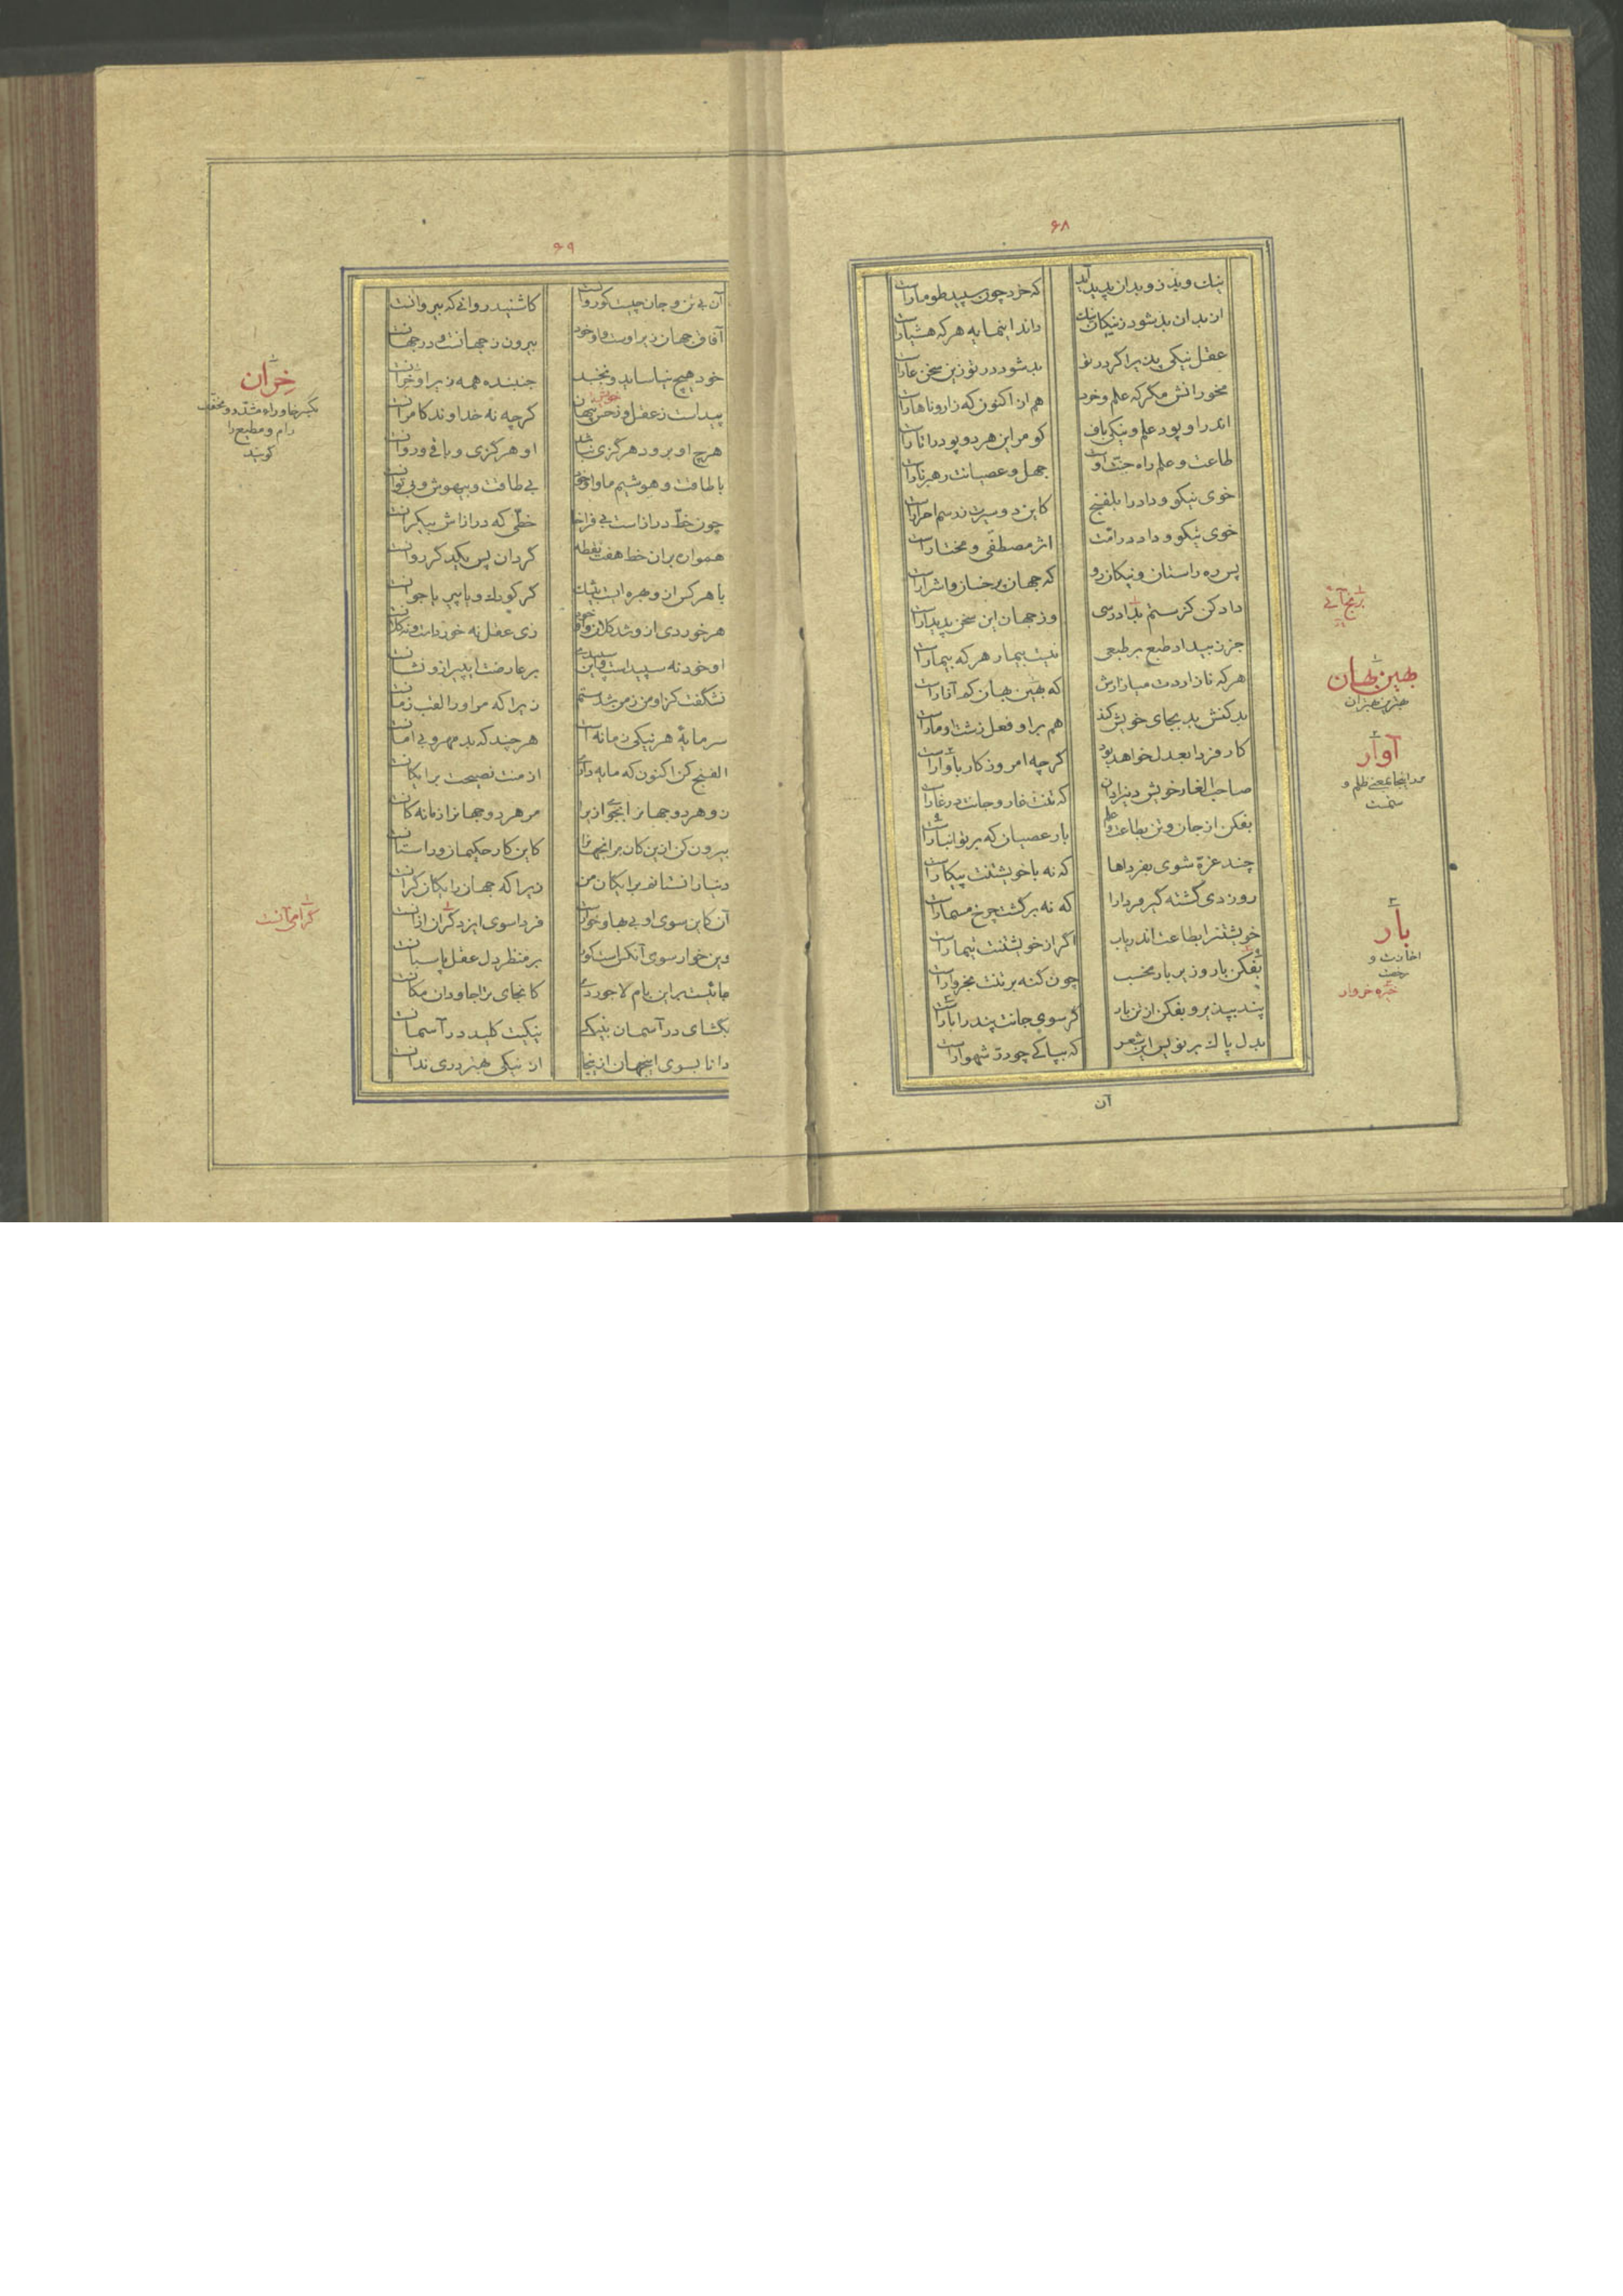 ۶۸
نیک و بد زو بدان پدید آید که خرد چون سپید طومار است
از بدان بد شود ز نیکان نیک داند اینمایه هر که هشیار است
عقل نیکی پذیر اگر در تو بد شود در تو زین سخن عار است
مخور انش مگر که علم و خرد هم از اکنون که زارو ناهار است
اندر او پود علم و نیکی باف کو مر این هر دو پود را تار است
طاعت و علم راه جنت اوست جهل و عصیانت رهبر نار است
خوی نیکو و داد را بلفنج کاین دو سیرت ز رسم احرار است
خوی نیکو و داد در امت اثر مصطفی و مختار است
پس ره راستان و نیکان رو که جهان پر خسار و اشرار است
داد کن کز ستم بداد رسی وز جهان این سخن پدیدار است
جز ز بیداد طبع بر طبعی نیست بیمار هر که بیمار است
هر که نازاردت میازارش که بهین بهان کم آزار است
بد کنش بد بجای خویش کند هم بر او فعل زشت او مار است
کار فردا بعدل خواهد بود گرچه امروز کار با وار است
صاحب الغار خویش دین را دان که تنت غار و جانت در غار است
بفکن از جان و تن بطاعت و علم بار عصیان که بر تو انبار است
چند غره شوی بفرداها که نه با خویشتنت پیکار است
روز دی گشته گیر فردا را که نه بر گشت چرخ مسمار است
خویشتن را بطاعت اندر یاب اگر از خویشتنت تیمار است
بفکن بار و زیر بار مخسب چون گنه بر تنت بخروار است
پند بپذیر و بفکن از تن بار گر سوی جانت پند را بار است
بدل پاک بر نویس این شعر که بپاکی چو در شهوار است
برنج آئی
بهین بهان
بهترین بهتران
آوار
در اینجا بمعنی ظلم و
ستمست
بار
اجازت و
رخصت
خره خروار
آن
۶۹
آن بی تن و جان چیست کو روان است کاشنید روانی که بی روانست
آفاق جهان زیر اوست و او خود بیرون ز جهانست و در جهان است
خود هیچ نیاساید و نجنبد جنبنده همه زیر او خران است
پیداست ز عقل و ز حس پنهان گرچه نه خداوند کامران است
هرچ او برود هرگزی نباشد او هرگزی و باقی و روان است
با طاقت و هوشیم ما و او خود بی طاقت و بیهوش و بی توان است
چون خط دراز است بی فراخا خطی که درازاش بیکران است
همواره بر آن خط هفت نقطه گردان پس یکدیگر روان است
با هر کس از و بهره ایست بیشک گر کودک و یا پیر یا جوان است
هر خوردی از و شد کلان و او خود زی عقل نه خوردست و نه کلان است
او خود نه سپید است و این سپیدی بر عارضت ای پیر از و نشان است
نشگفت کز او من زمن شدستم زیرا که مر او را لقب زمان است
سرمایهٔ هر نیکی زمانه است هر چند که بد مهر و بی امان است
الفنج کن اکنون که مایه داری از منت نصیحت برایگان است
زو هر دو جهان را بجو ازیرا مر هر دو جهان را زمانه کان است
بیرون کن ازین کان مر آنجهان را کاین کار حکیمان و راستان است
دنیا را نشانم برایگان من زیرا که جهان رایگان گران است
آن کاین سوی او بی بها و خوار است فردا سوی ایزد گران از آن است
وین خوار سوی آنکس است کو بر منظر دل عقل پاسبان است
مانیست بر این بام لاجوردی کانجای ترا جاودان مکان است
بگشای در آسمان بنیکی نیکیت کلید در آسمان است
دانا بسوی اینجهان از ینجا از نیکی بهتر دری ندان است
خوش
خران
بکسر خا و راء مشدد و مخفف
رام و مطیع را
گویند
گرامی‌است